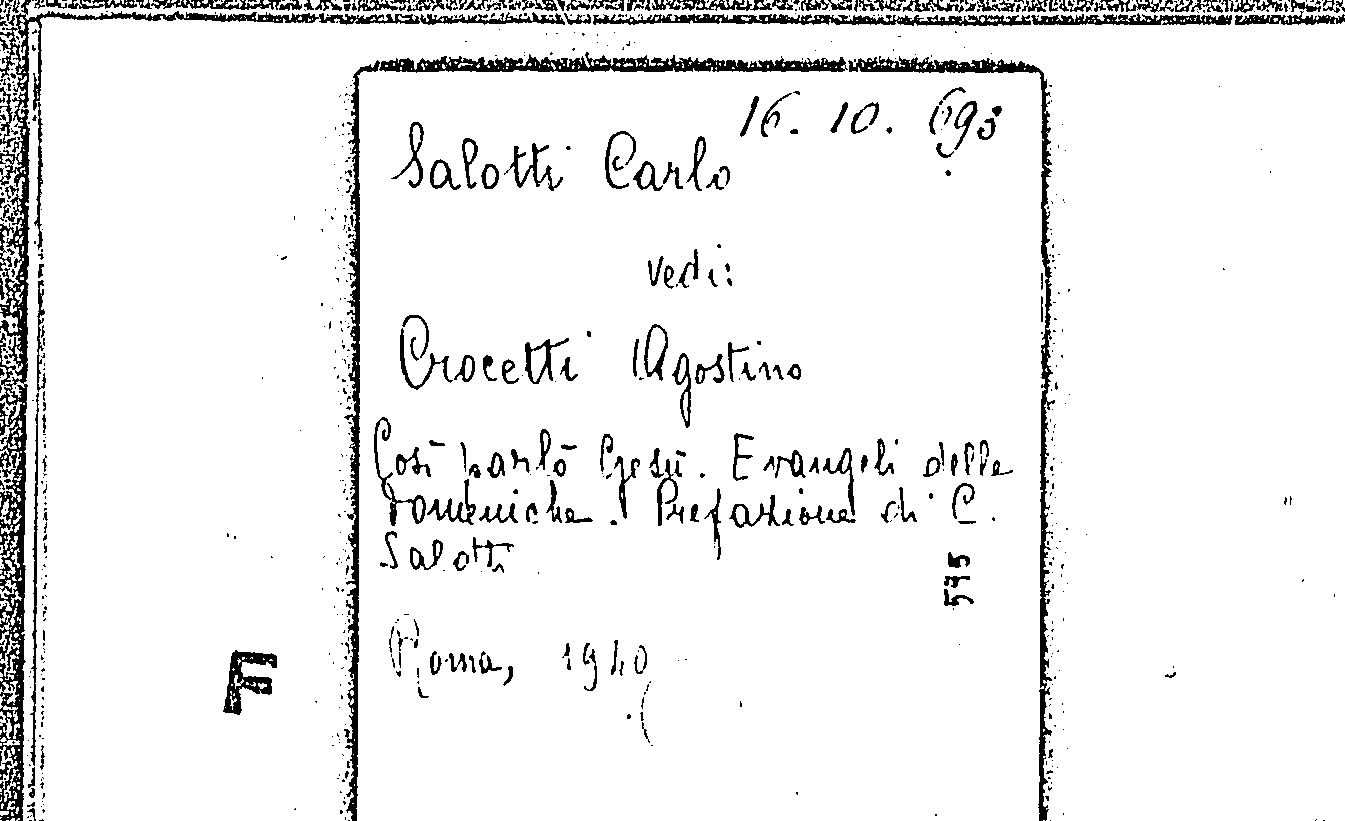 16. 10. 693
Salotti Carlo
vedi:
Crocetti Agostino
Così parlò Gesù. Evangeli delle
domeniche. Prefazione di C.
Salotti
575
Roma, 1940
F